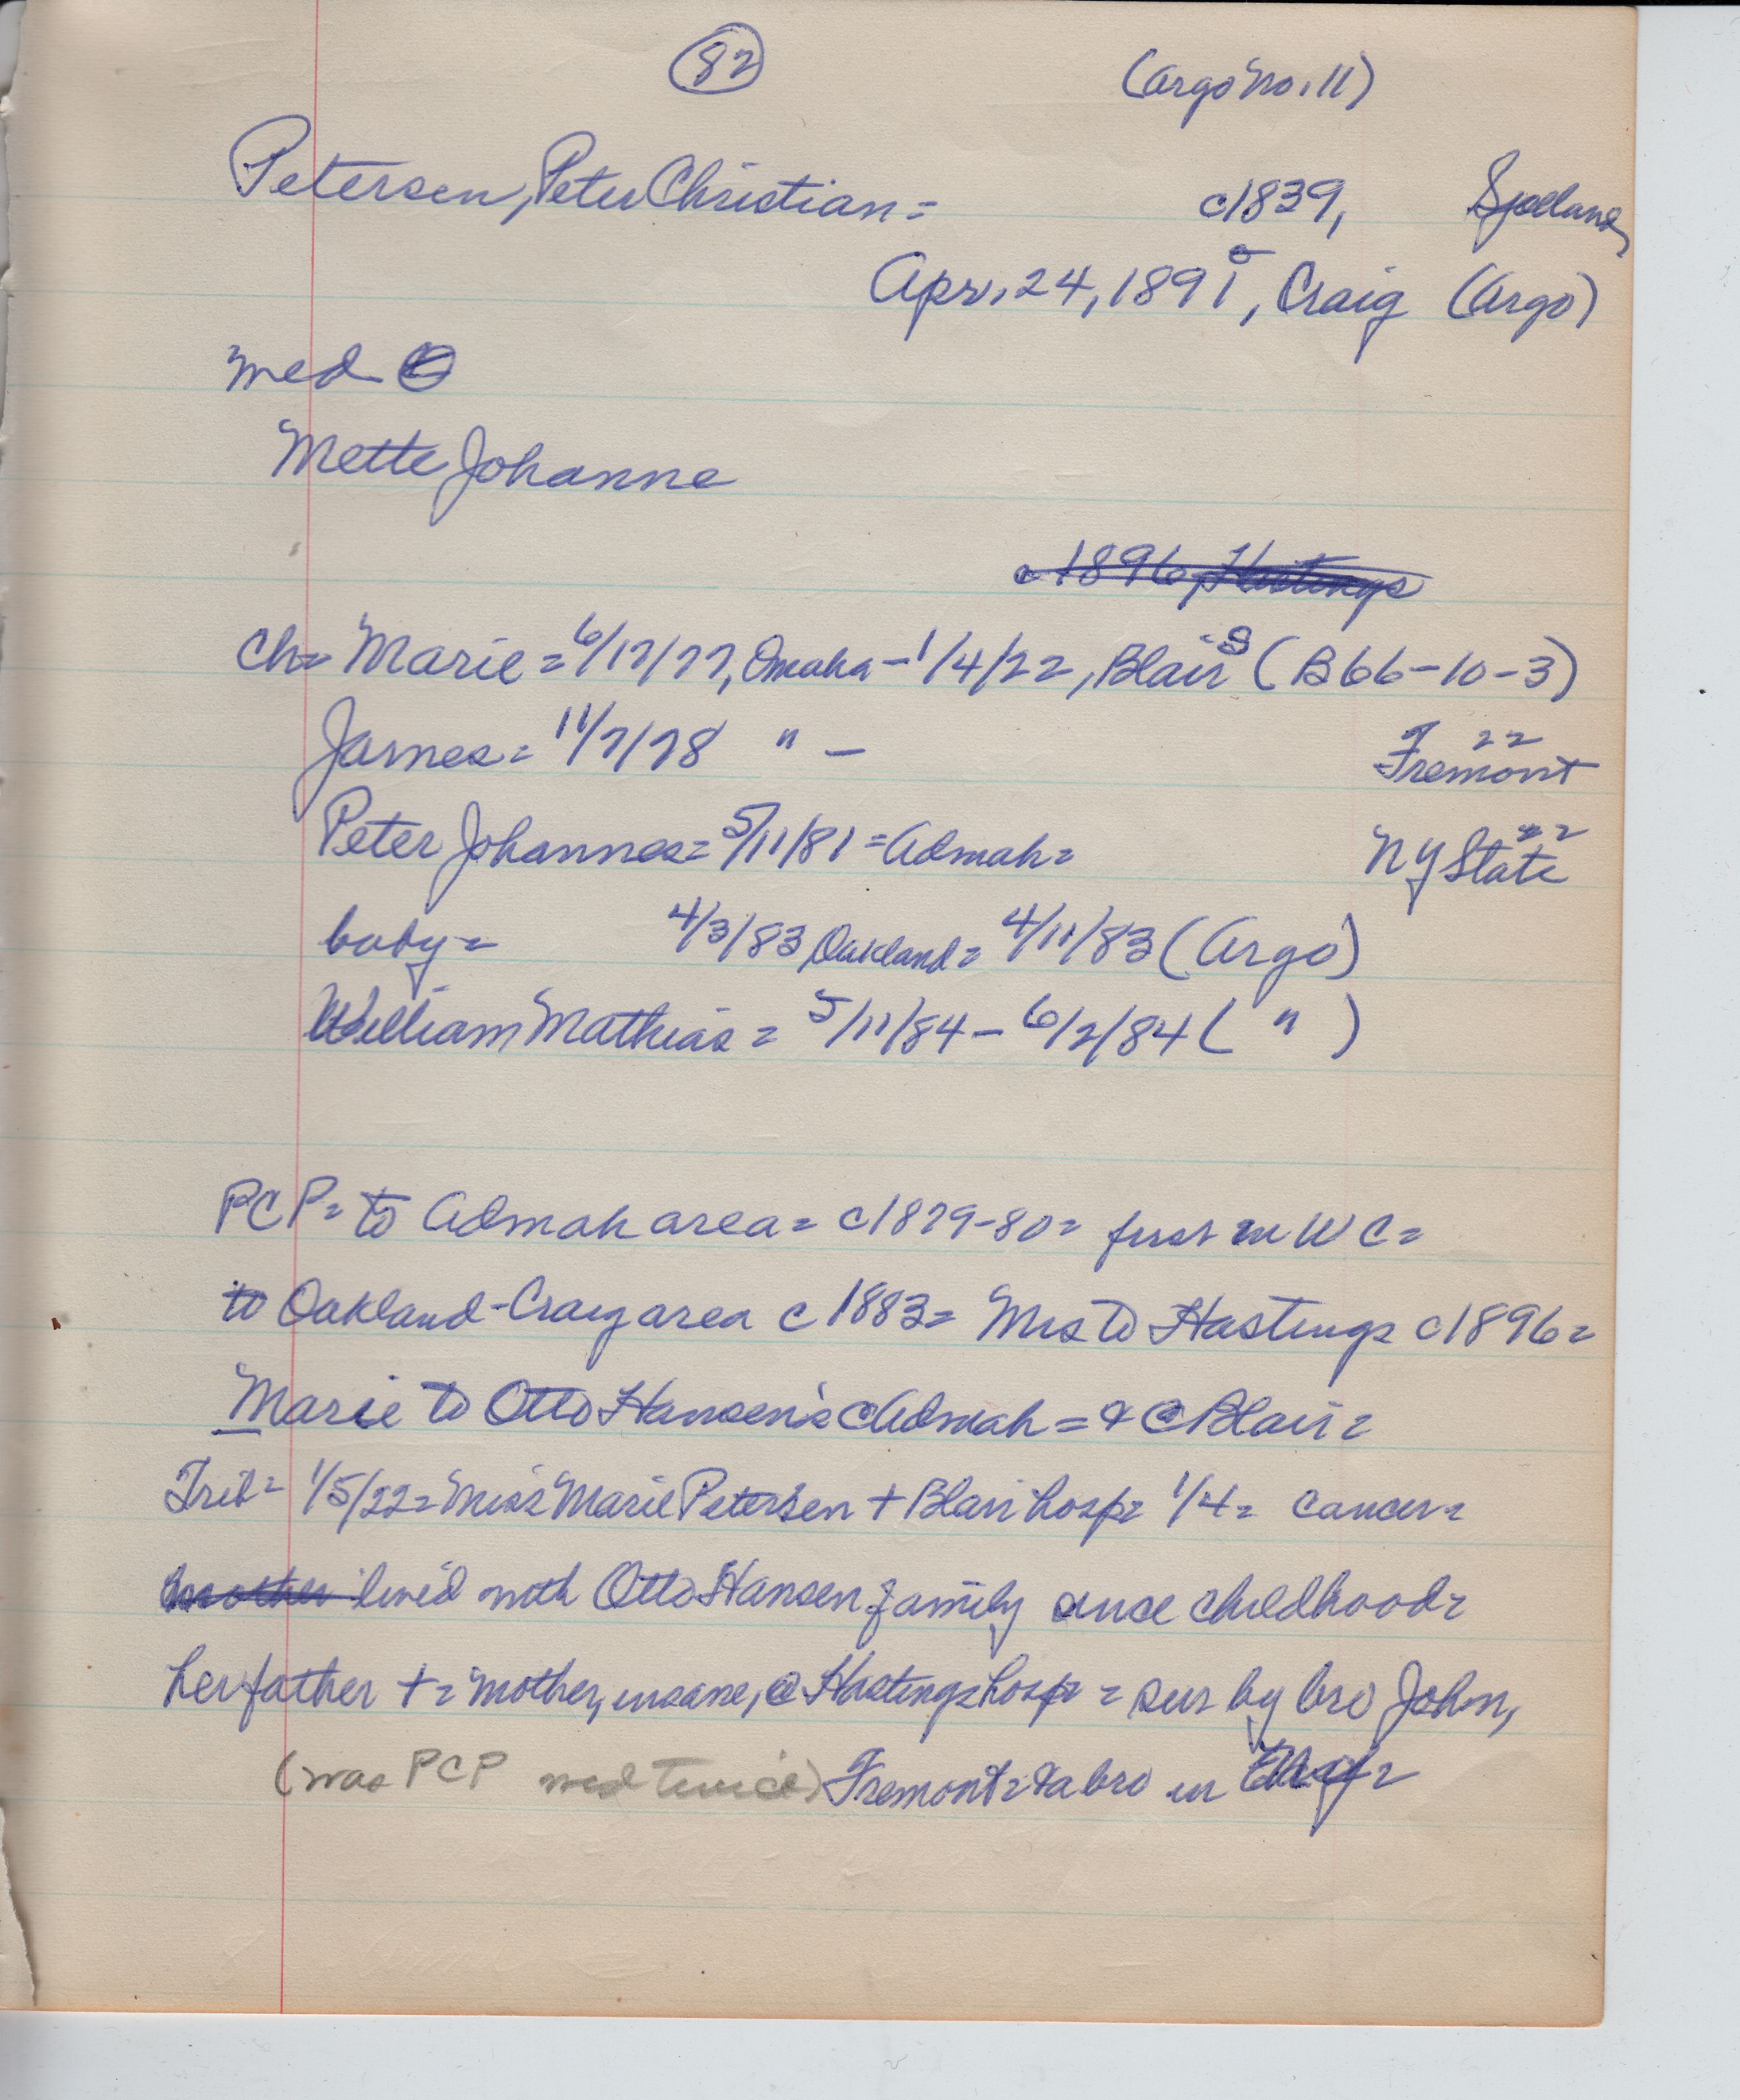 82
(Argo No. 11)
Petersen, Peter Christian = c1839, Sjelland,
Apr. 24, 1891, Craig (Argo)
med
Mette Johanne
c 1896, Hastings
Ch= Marie = 6/17/77, Omaha - 1/4/22, Blair S (B66-10-3)
James = 11/7/78 " - 22 Fremont
Peter Johannes = 5/11/81 = Admah = 22 NY State
baby = 4/3/83 Oakland = 4/11/83 (Argo)
William Mathias = 5/11/84 - 6/2/84 ( " )
PCP = to Admah area = c1879-80 = first in WC =
to Oakland-Craig area c 1883 = Mrs to Hastings c1896 =
Marie to Otto Hansen's c Admah = & c Blair =
Trib = 1/5/22 = Miss Marie Petersen + Blair hosp = 1/4 = cancer =
lived with Otto Hansen family since childhood =
her father + = mother, insane, @ Hastings hosp = sur by bro John,
(was PCP med twice) Fremont = & a bro in